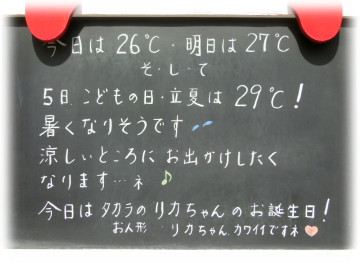 今日は26℃・明日は27℃
そ・し・て
5日.こどもの日・立夏は29℃!
暑くなりそうです
涼しいところにお出かけしたく
なります…ネ♪
今日はタカラのリカちゃんのお誕生日!
お人形 リカちゃん.カワイイですネ